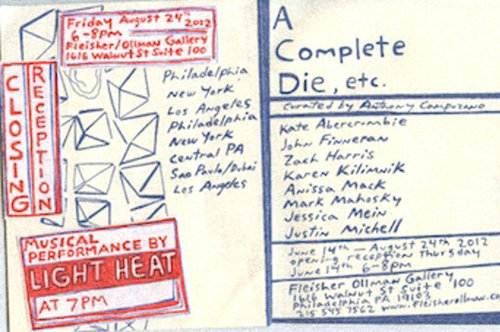 Friday August 24th 2012
6-8pm
Fleisher/Ollman Gallery
1616 Walnut St Suite 100
CLOSING
RECEPTION
Philadelphia
New York
Los Angeles
Philadelphia
New York
Central PA
Sao Paulo/Dubai
Los Angeles
MUSICAL
PERFORMANCE BY
LIGHT HEAT
AT 7PM
A
Complete
Die, etc.
Curated by Anthony Campuzano
Kate Abercrombie
John Finneran
Zach Harris
Karen Kilimnik
Anissa Mack
Mark Mahosky
Jessica Mein
Justin Michell
June 14th — August 24th 2012
opening reception Thursday
June 14th 6-8pm
Fleisher Ollman Gallery
1616 Walnut St Suite 100
Philadelphia PA 19103
215 545 7562 www.fleisherollman.co